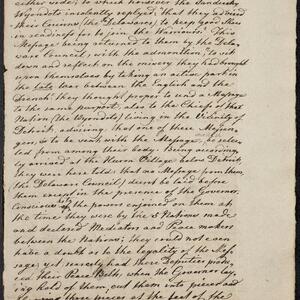 either side; to which however the Sandusky
Wyondots insolently replied, that they advised
their Cousins (the Delawares) to keep good shoes
in readiness for to join the Warriours. This
Message being returned to them by the Dela-
ware Council, with the admonition, "to sit
down and reflect on the misery they had brought
upon themselves by taking an active part in
the late War between the English and the
French." They thereupon prepared to send a Message
to the same purport, also to the Chiefs of that
Nation (the Wyondots) living in the Vicinity of
Detroit, advising that one of these Messen-
gers, to be went with the Message, be selec-
ted from among their body; being according-
ly arrived at the Huron Village below Detroit,
they were here told; that no Message from them,
(the Delaware Council) durst be laid before
them except in the presence of the Governor.
Conscious of the powers enjoined on them at
the time they were by the 5 Nations made
and declared Mediators and Peace makers
between the Nations; they could not even
have a doubt as to the legality of the Mes-
sage; but scarcely had these Deputies produ-
ced their Peace Belts, when the Governor lay-
ing hold of them, cut them into pieces and
throwing these pieces at the feet of the